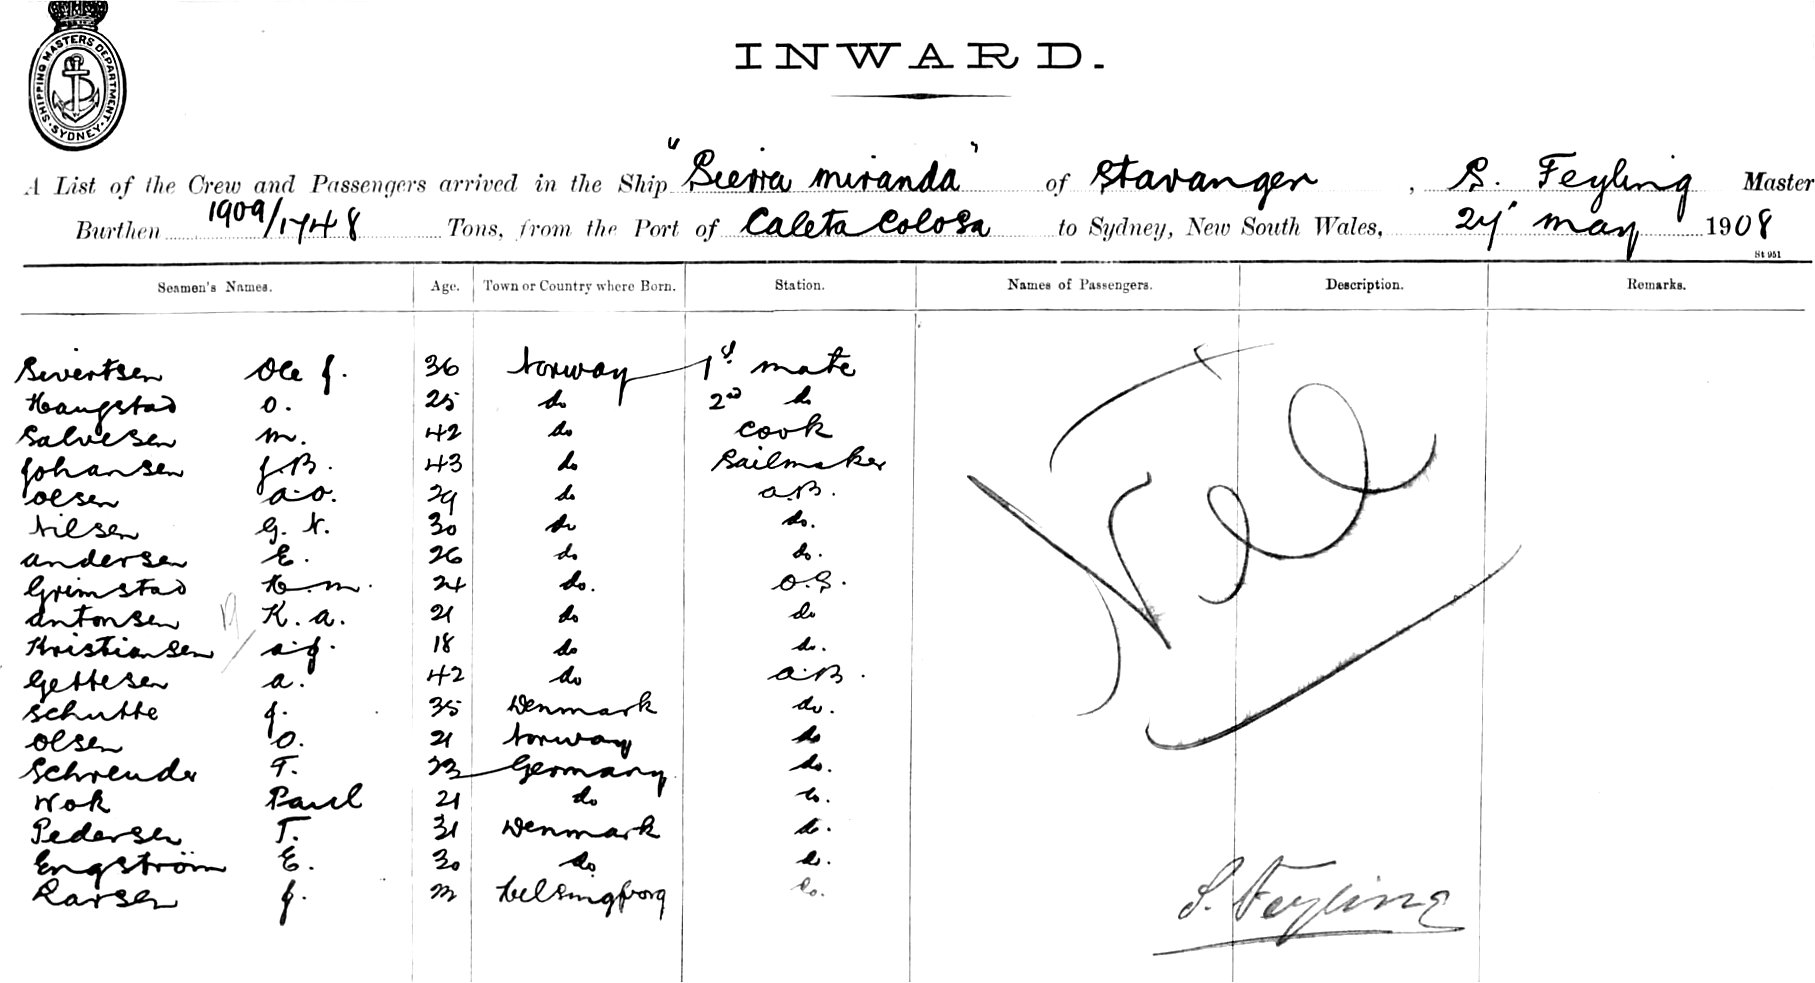 SHIPPING MASTERS DEPARTMENT
SYDNEY
INWARD.
A List of the Crew and Passengers arrived in the Ship "Sierra Miranda" of Stavanger, S. Feyling Master
Burthen 1909/1748 Tons, from the Port of Caleta Colosa to Sydney, New South Wales, 24 May 1908
St 951
Seamen's Names. Age. Town or Country where Born. Station. Names of Passengers. Description. Remarks.
Sivertsen Ole J. 36 Norway 1st mate
Haugstad O. 25 do 2nd do
Salvesen M. 42 do Cook
Johansen J.B. 43 do Sailmaker
Olsen A.O. 29 do A.B.
Nilsen G. N. 30 do do.
Andersen E. 26 do do.
Grimstad H.M. 24 do. O.S.
Antonsen K. A. 21 do do
Kristiansen A.J. 18 do do.
Gettesen A. 42 do A.B.
Schutte J. 35 Denmark do.
Olsen O. 21 Norway do
Schreuder T. Germany do.
Wok Paul 21 do do.
Pedersen T. 31 Denmark do.
Engström E. 30 do do.
Larsen J. Helsingborg do.
Nil
S. Feyling